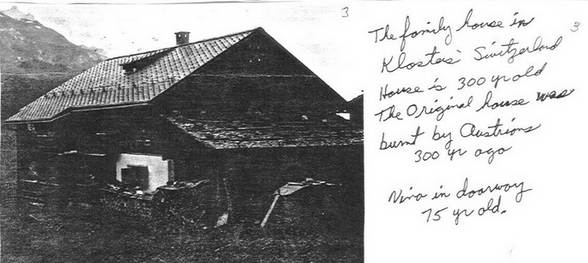 3
The family house in
Klosters Switzerland
3
House is 300 yr old
The Original house was
burnt by Austrians
300 yr ago
Nina in doorway
75 yr old.